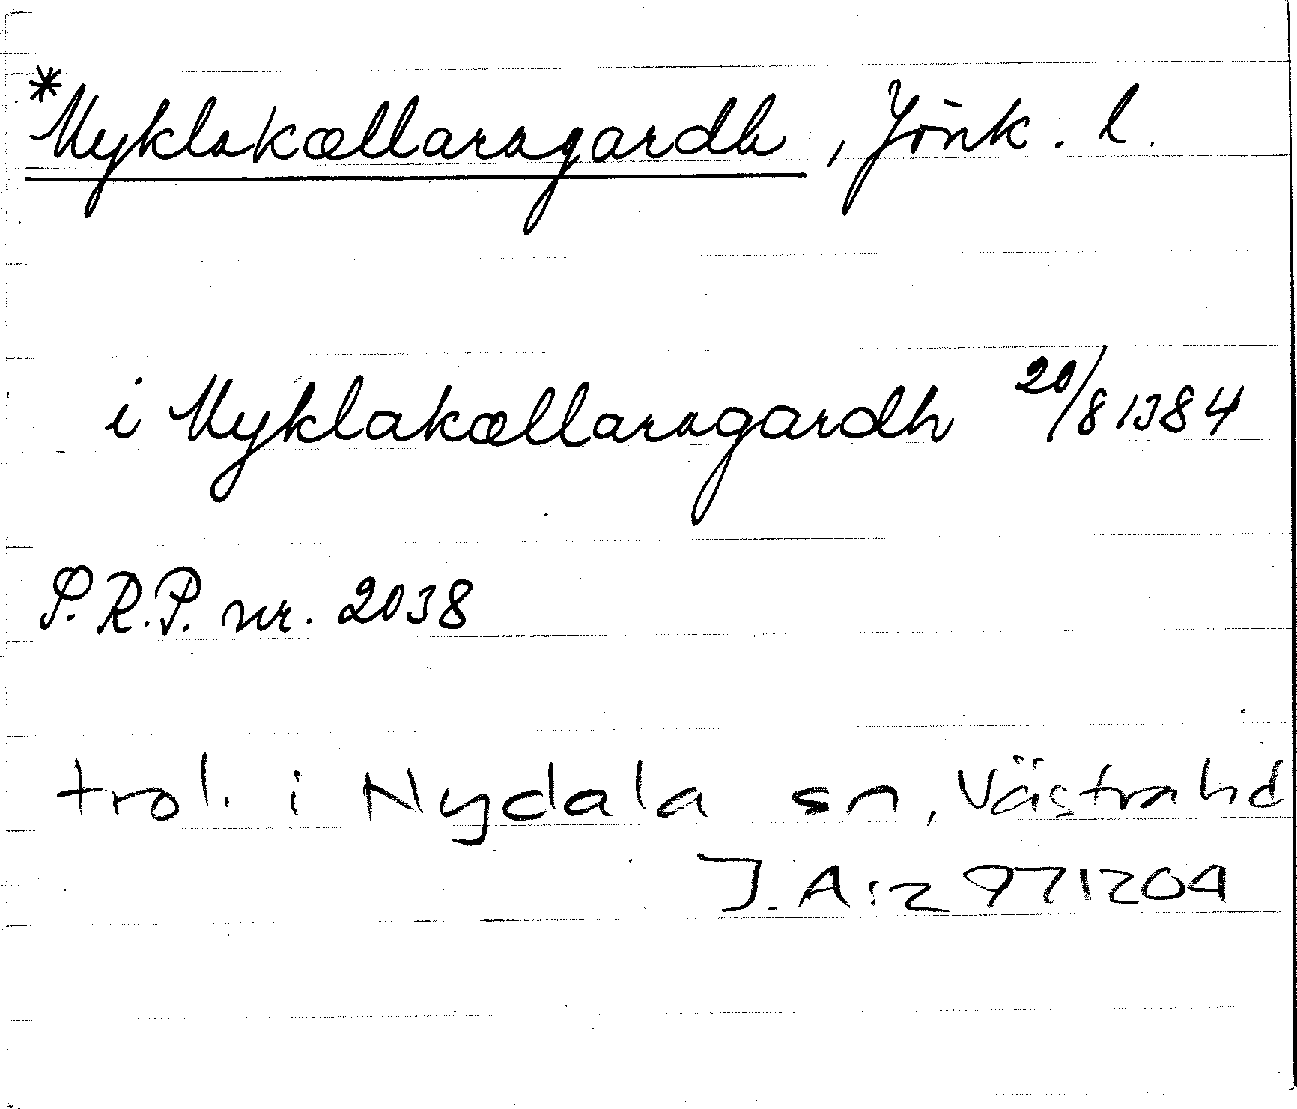 *Myklakællaragardh, Jönk. l.
i Myklakællaragardh 20/8 1384
S.R.P. nr. 2038
trol. i Nydala sn, Västra hd
J.A:z 971204